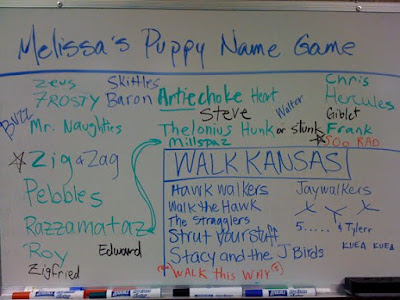 Melissa's Puppy Name Game
Zeus
Skittles
Chris
Frosty
Baron
Artiechoke Heart
Hercules
Buzz
Steve
Walter
Giblet
Mr. Naughties
Thelonius Hunk or Stunk
Frank
Millspaz
Soo RAD
Zig & Zag
WALK KANSAS
Pebbles
Hawk Walkers
Jaywalkers
Walk the Hawk
The Stragglers
Razzamataz
Strut your stuff
5...... 4 Tylerr
Roy
Edward
Stacy and the J Birds
KUEA KUEA
Zigfried
WALK this WAY